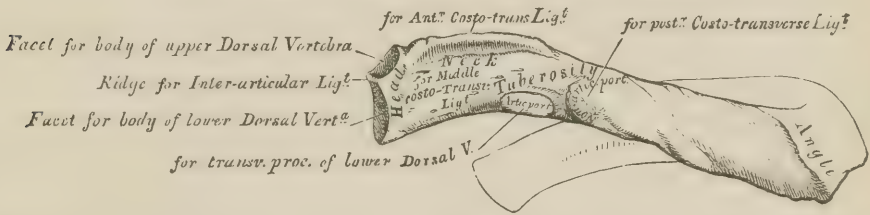 for Ant.r Costo-trans Lig.t
for post.r Costo-transverse Lig.t
Facet for body of upper Dorsal Vertebra
Ridge for Inter-articular Lig.t
Facet for body of lower Dorsal Vert.a
for transv. proc. of lower Dorsal V.
Head
Neck
for Middle
Costo-Transv:
Ligt
Tuberosity
Artic port
Artic port.
Angle